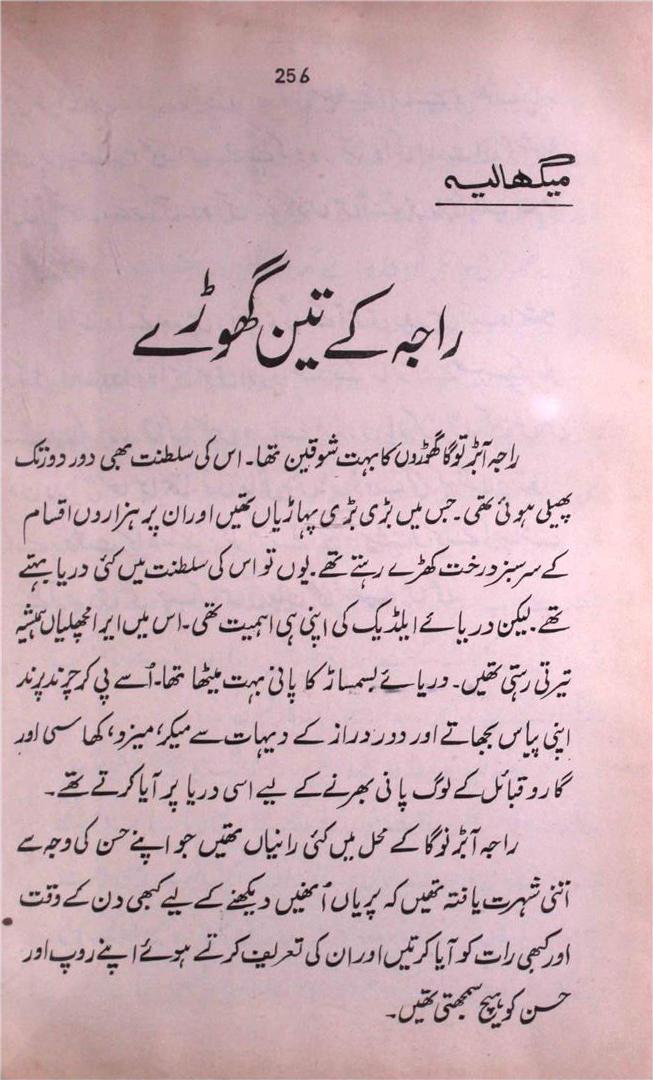 256
میگھالیہ
راجہ کے تین گھوڑے
راجہ آبزنوگا گھوڑوں کا بہت شوقین تھا۔ اس کی سلطنت بھی دور دور تک
پھیلی ہوئی تھی۔ جس میں بڑی بڑی پہاڑیاں تھیں اور ان پر ہزاروں اقسام
کے سرسبز درخت کھڑے رہتے تھے۔ یوں تو اس کی سلطنت میں کئی دریا بہتے
تھے۔ لیکن دریائے ایلڈیک کی اپنی ہی اہمیت تھی۔ اس میں ایرا مچھلیاں ہمیشہ
تیرتی رہتی تھیں۔ دریائے بسمساڑ کا پانی بہت میٹھا تھا۔ اُسے پی کر چرند پرند
اپنی پیاس بجھاتے اور دور دراز کے دیہات سے میکر، میزد، کھاسی اور
گارو قبائل کے لوگ پانی بھرنے کے لیے اسی دریا پر آیا کرتے تھے۔
راجہ آبزنوگا کے محل میں کئی رانیاں تھیں جو اپنے حسن کی وجہ سے
اتنی شہرت یافتہ تھیں کہ پریاں اُنھیں دیکھنے کے لیے کبھی دن کے وقت
اور کبھی رات کو آیا کرتیں اور ان کی تعریف کرتے ہوئے اپنے روپ اور
حسن کو ہیچ سمجھتی تھیں۔